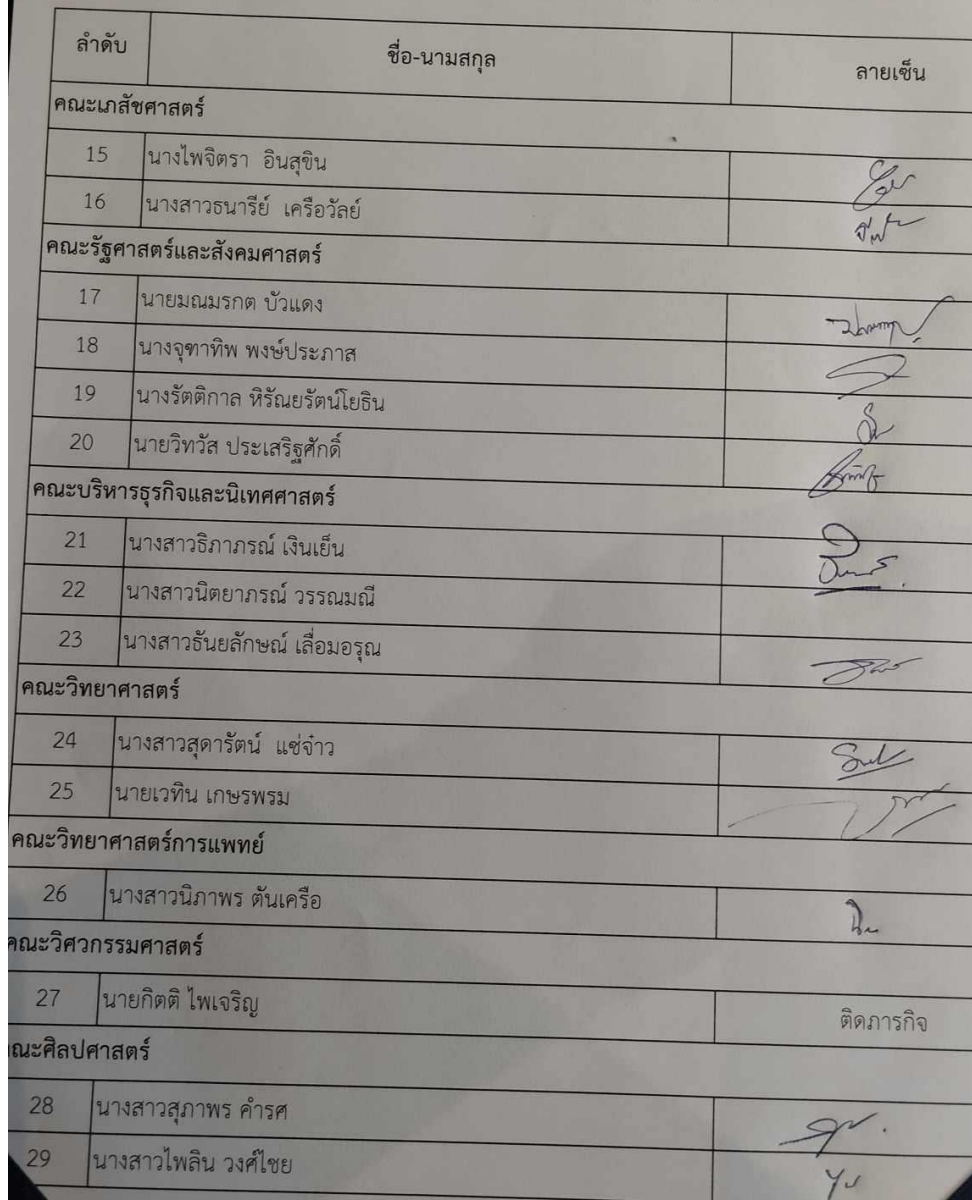 ลำดับ ชื่อ-นามสกุล ลายเซ็น
คณะเภสัชศาสตร์
15 นางไพจิตรา อินสุขิน
16 นางสาวธนารีย์ เครือวัลย์
คณะรัฐศาสตร์และสังคมศาสตร์
17 นายมณมรกต บัวแดง
18 นางจุฑาทิพ พงษ์ประภาส
19 นางรัตติกาล หิรัณยรัตน์โยธิน
20 นายวิทวัส ประเสริฐศักดิ์
คณะบริหารธุรกิจและนิเทศศาสตร์
21 นางสาวธิภาภรณ์ เงินเย็น
22 นางสาวนิตยาภรณ์ วรรณมณี
23 นางสาวธันยลักษณ์ เลื่อมอรุณ
คณะวิทยาศาสตร์
24 นางสาวสุดารัตน์ แซ่จ๋าว
25 นายเวทิน เกษรพรม
คณะวิทยาศาสตร์การแพทย์
26 นางสาวนิภาพร ตันเครือ
คณะวิศวกรรมศาสตร์
27 นายกิตติ ไพเจริญ ติดภารกิจ
คณะศิลปศาสตร์
28 นางสาวสุภาพร คำรศ
29 นางสาวไพลิน วงศ์ไชย